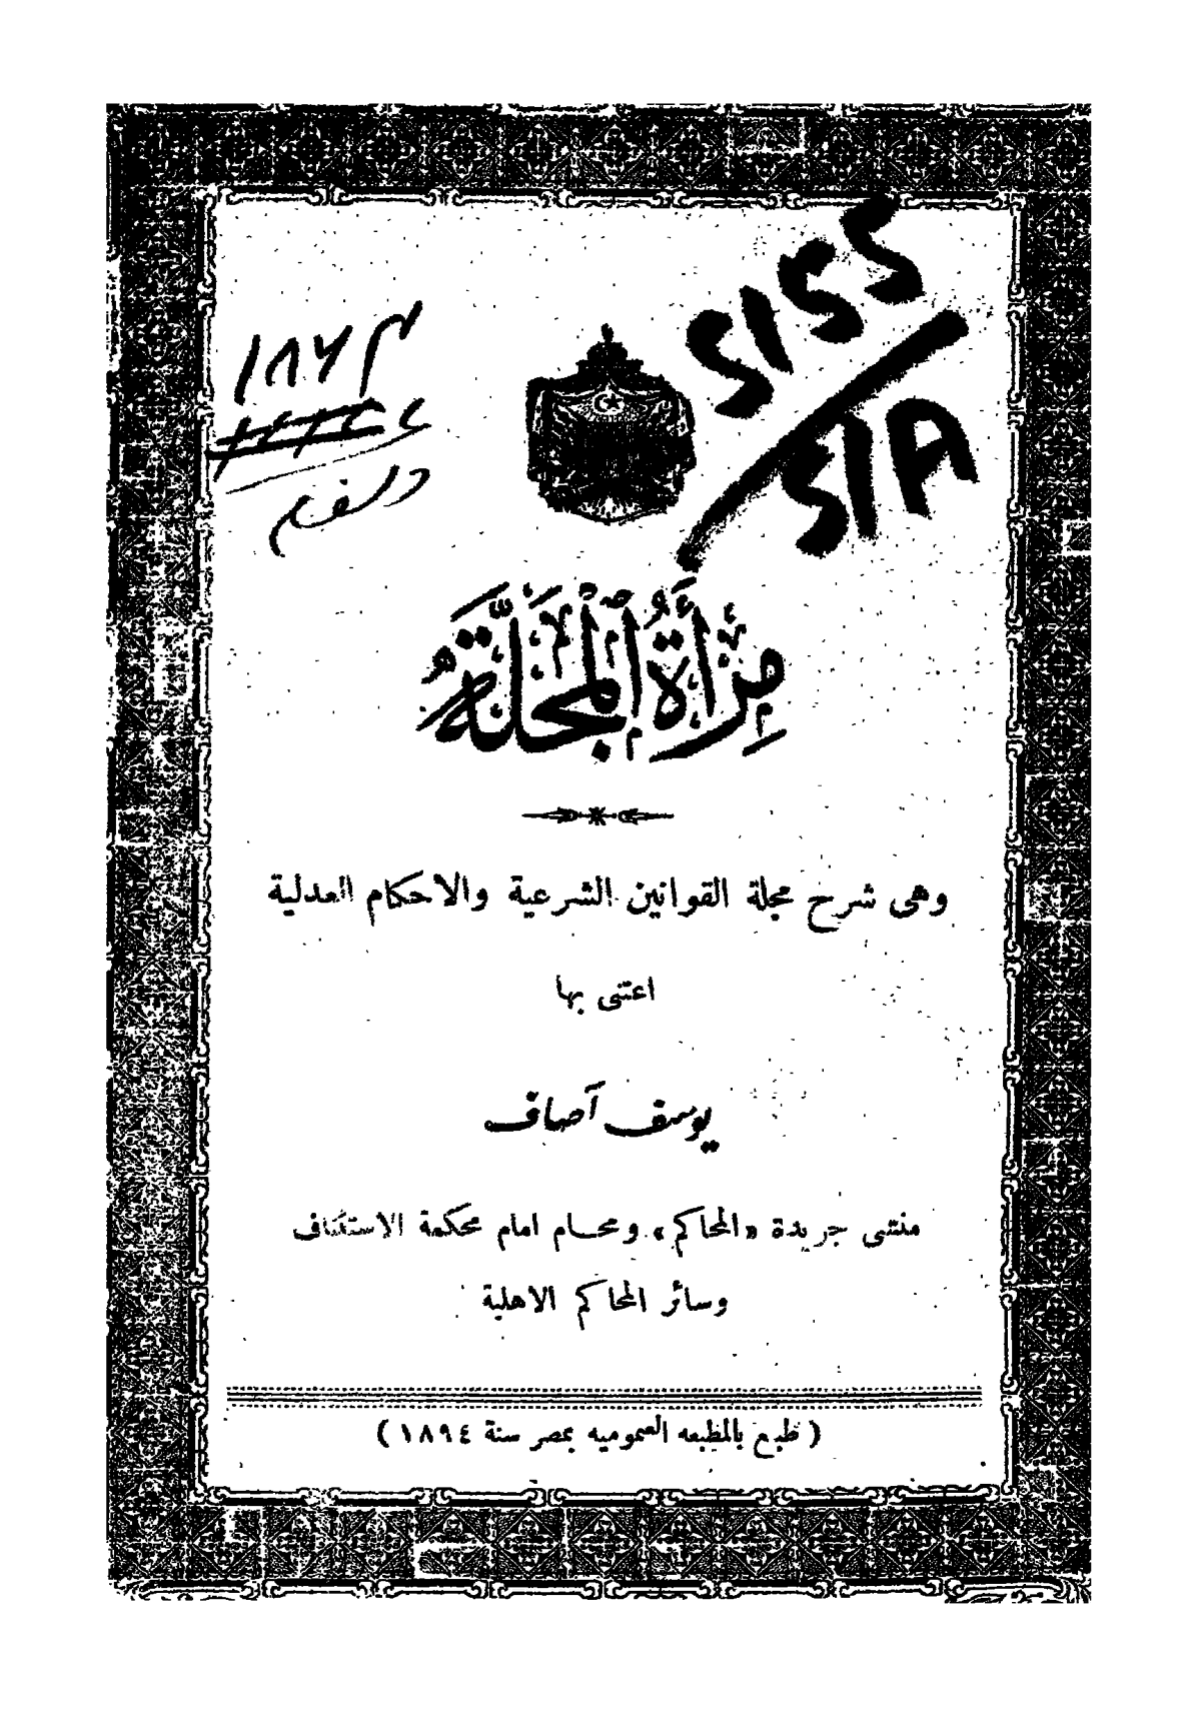 مِرْأَةُ ٱلْمَجَلَّةِ
وهى شرح مجلة القوانين الشرعية والاحكام العدلية
اعتنى بها
يوسف آصاف
منشى جريدة «المحاكم» ومحام امام محكمة الاستئناف
وسائر المحاكم الاهلية
( طبع بالمطبعه العموميه بمصر سنة ١٨٩٤ )